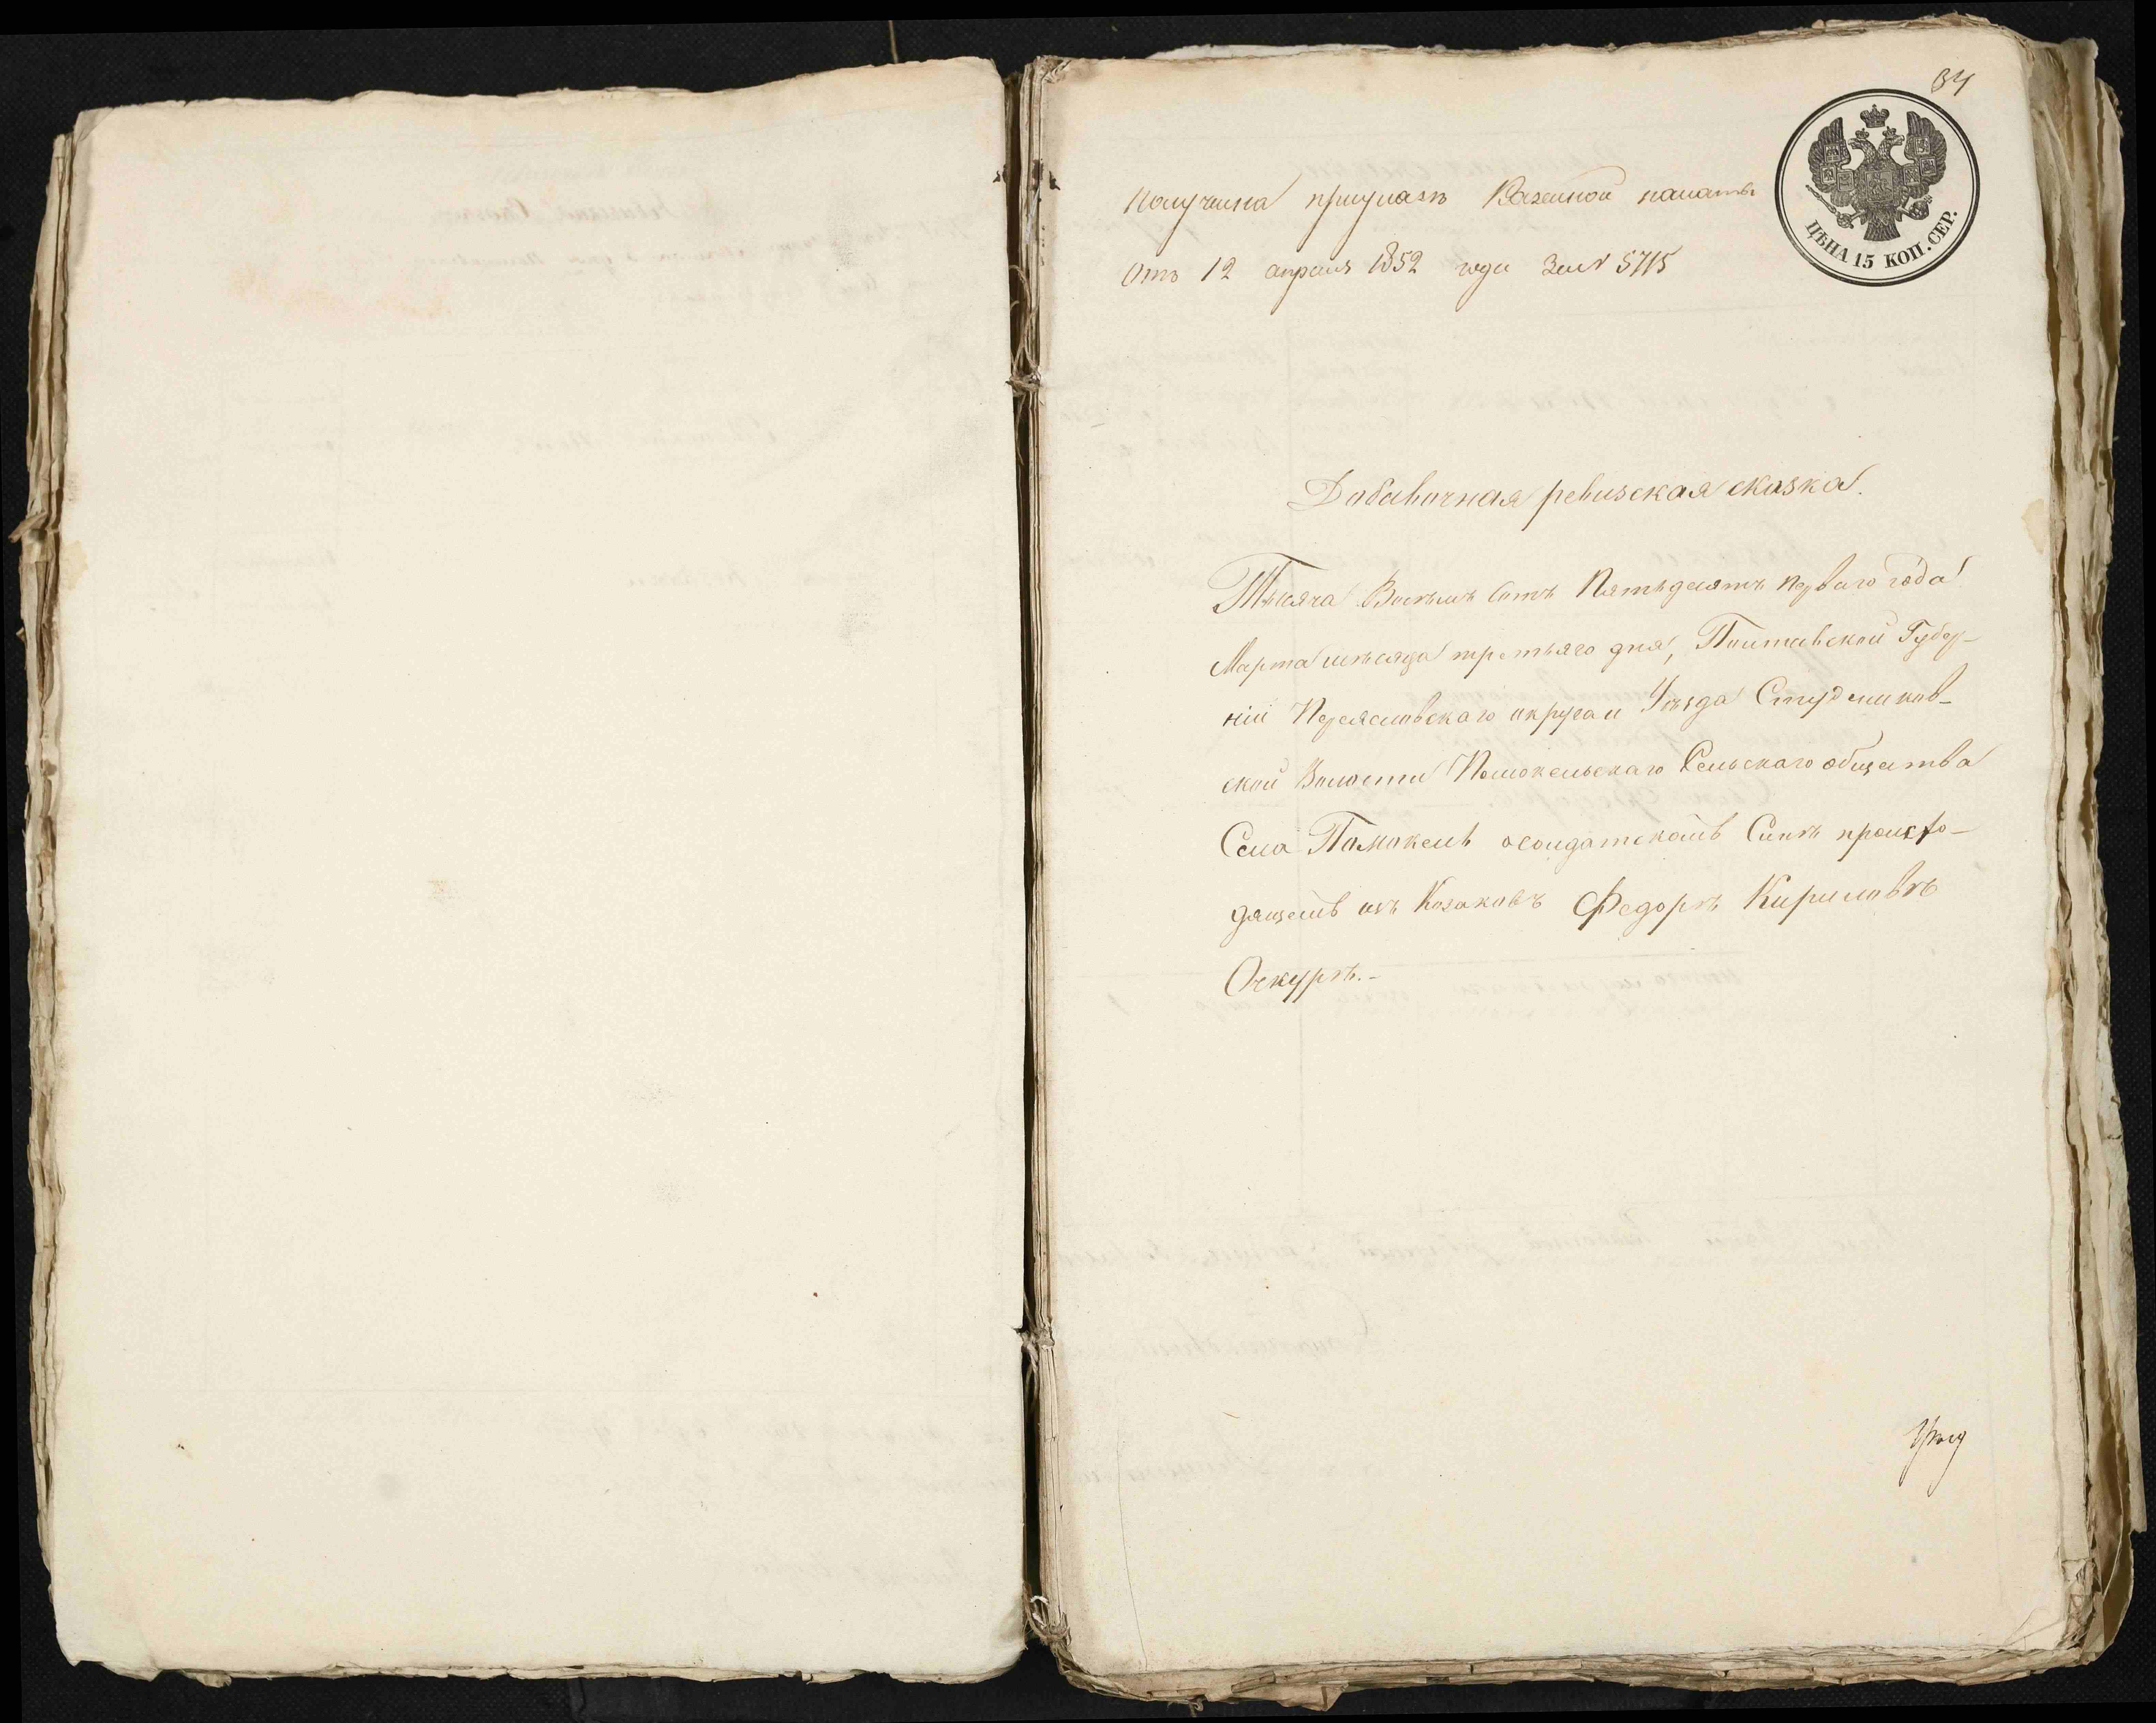 84
ЦѢНА 15 КОП. СЕР.
Получена приуказѣ Казенной палаты
Отъ 12 апреля 1852 года За № 5715
Добавочная ревизская сказка.
Тысяча Восемь Сотъ Пятьдесятъ Перваго года
Марта месяца третьяго дня, Полтавской Губер-
ніи Переяславскаго округа и Уѣзда Студеников-
ской Волости Помокельскаго Сельскаго общества
Села Помокель осолдатскомъ Сынѣ происхо-
дящемъ изъ Козаковъ Федорѣ Кириловѣ
Очкурѣ.-